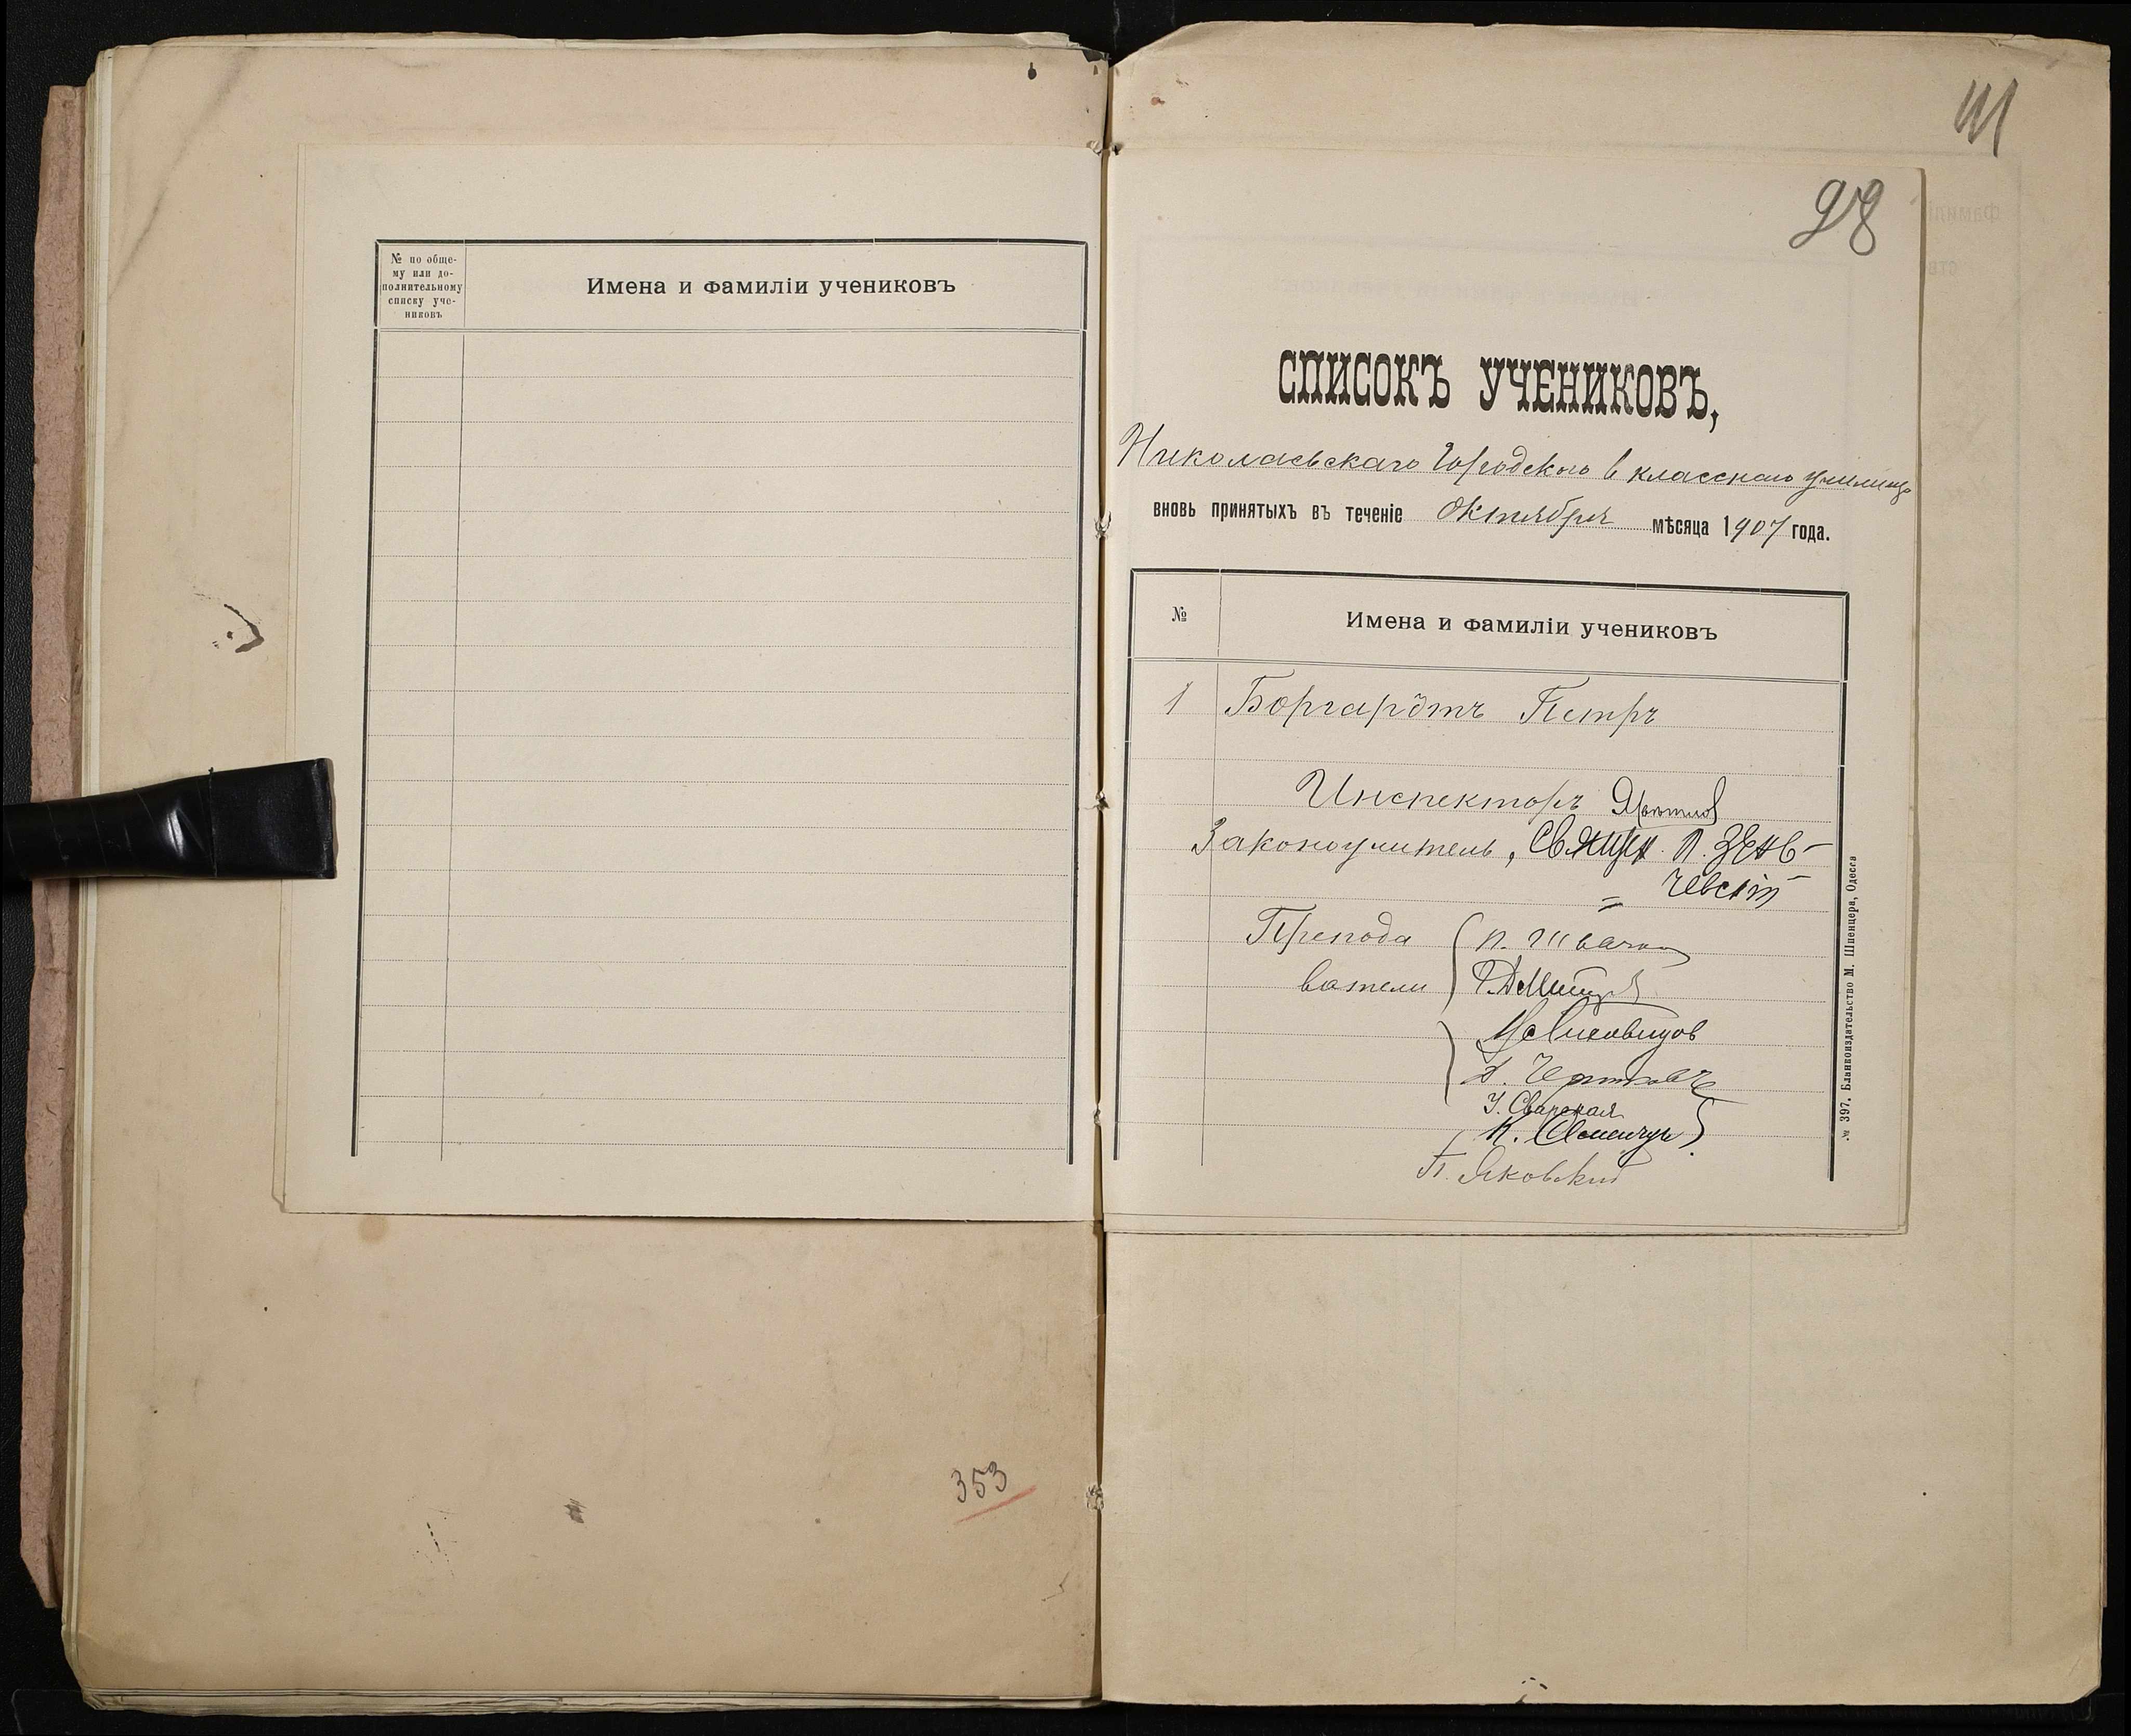 № по обще-
му или до-
полнительному
списку уче-
никовъ
Имена и фамиліи учениковъ
353
98
СПИСОКЪ УЧЕНИКОВЪ,
Николаевскаго Городского 6 класснаго училища
вновь принятыхъ въ теченіе Октября мѣсяца 1907 года.
№
Имена и фамиліи учениковъ
1 Боргардтъ Петръ
Инспекторъ
Законоучитель, Священ. П. Зень-
чевскій
Препода
ватели
П. Швачко
Ф. Дмитр
У. Сварская
К.
П. Яковкин
№ 397. Бланкоиздательство М. Шпенцера, Одесса